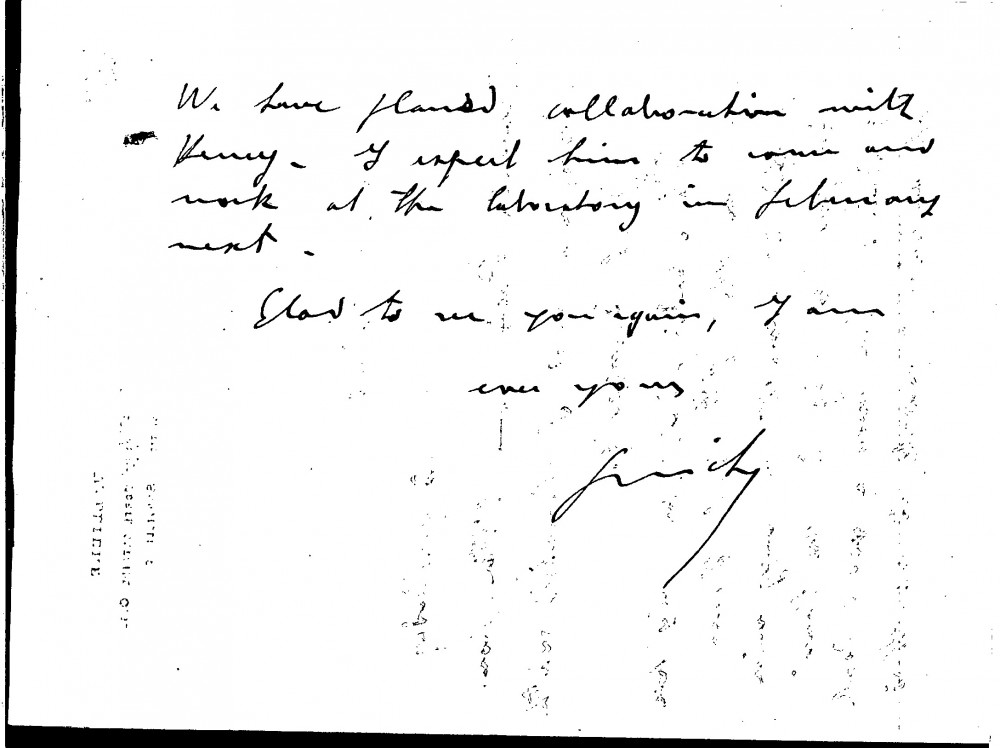 We have planned collaboration with
Henry. I expect him to come and
work at the laboratory in february
next.
Glad to see you again, I am
ever yours